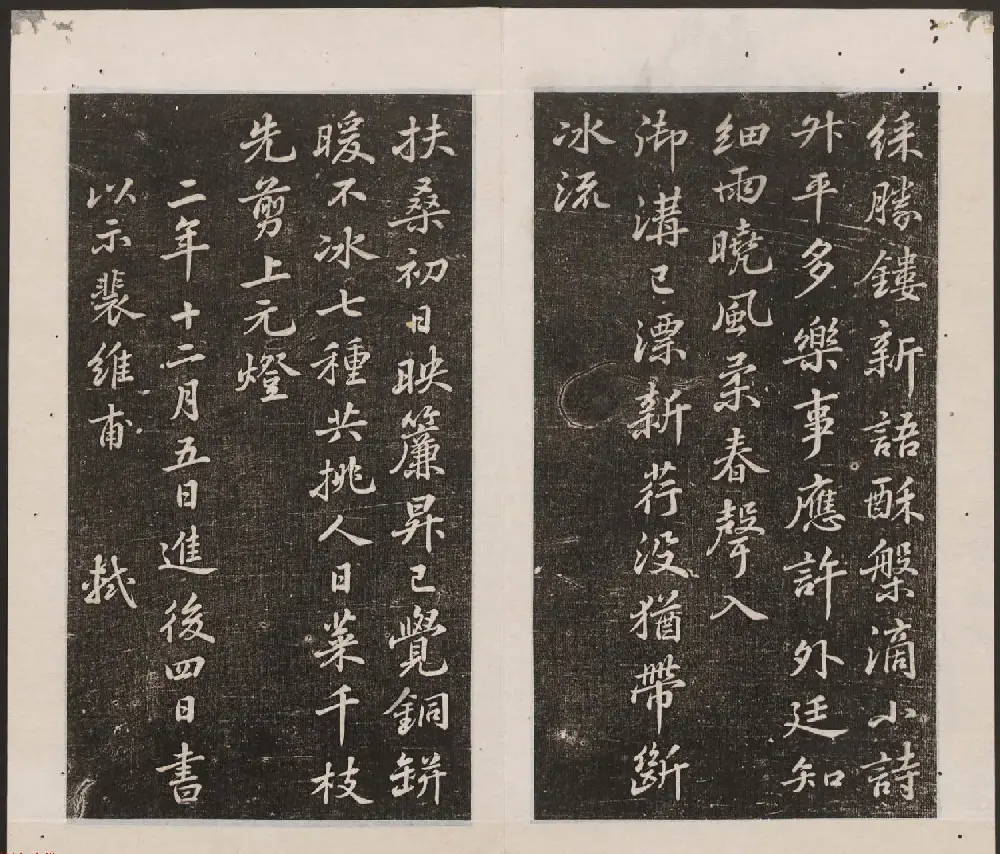 綵勝鏤新語酥槃滴小詩
升平多樂事應許外廷知
細雨曉風柔春聲入
御溝已漂新荇沒猶帶斷
冰流
扶桑初日映簾昇已覺銅缾
暖不冰七種共挑人日菜千枝
先剪上元燈
二年十二月五日進後四日書
以示裴維甫 軾